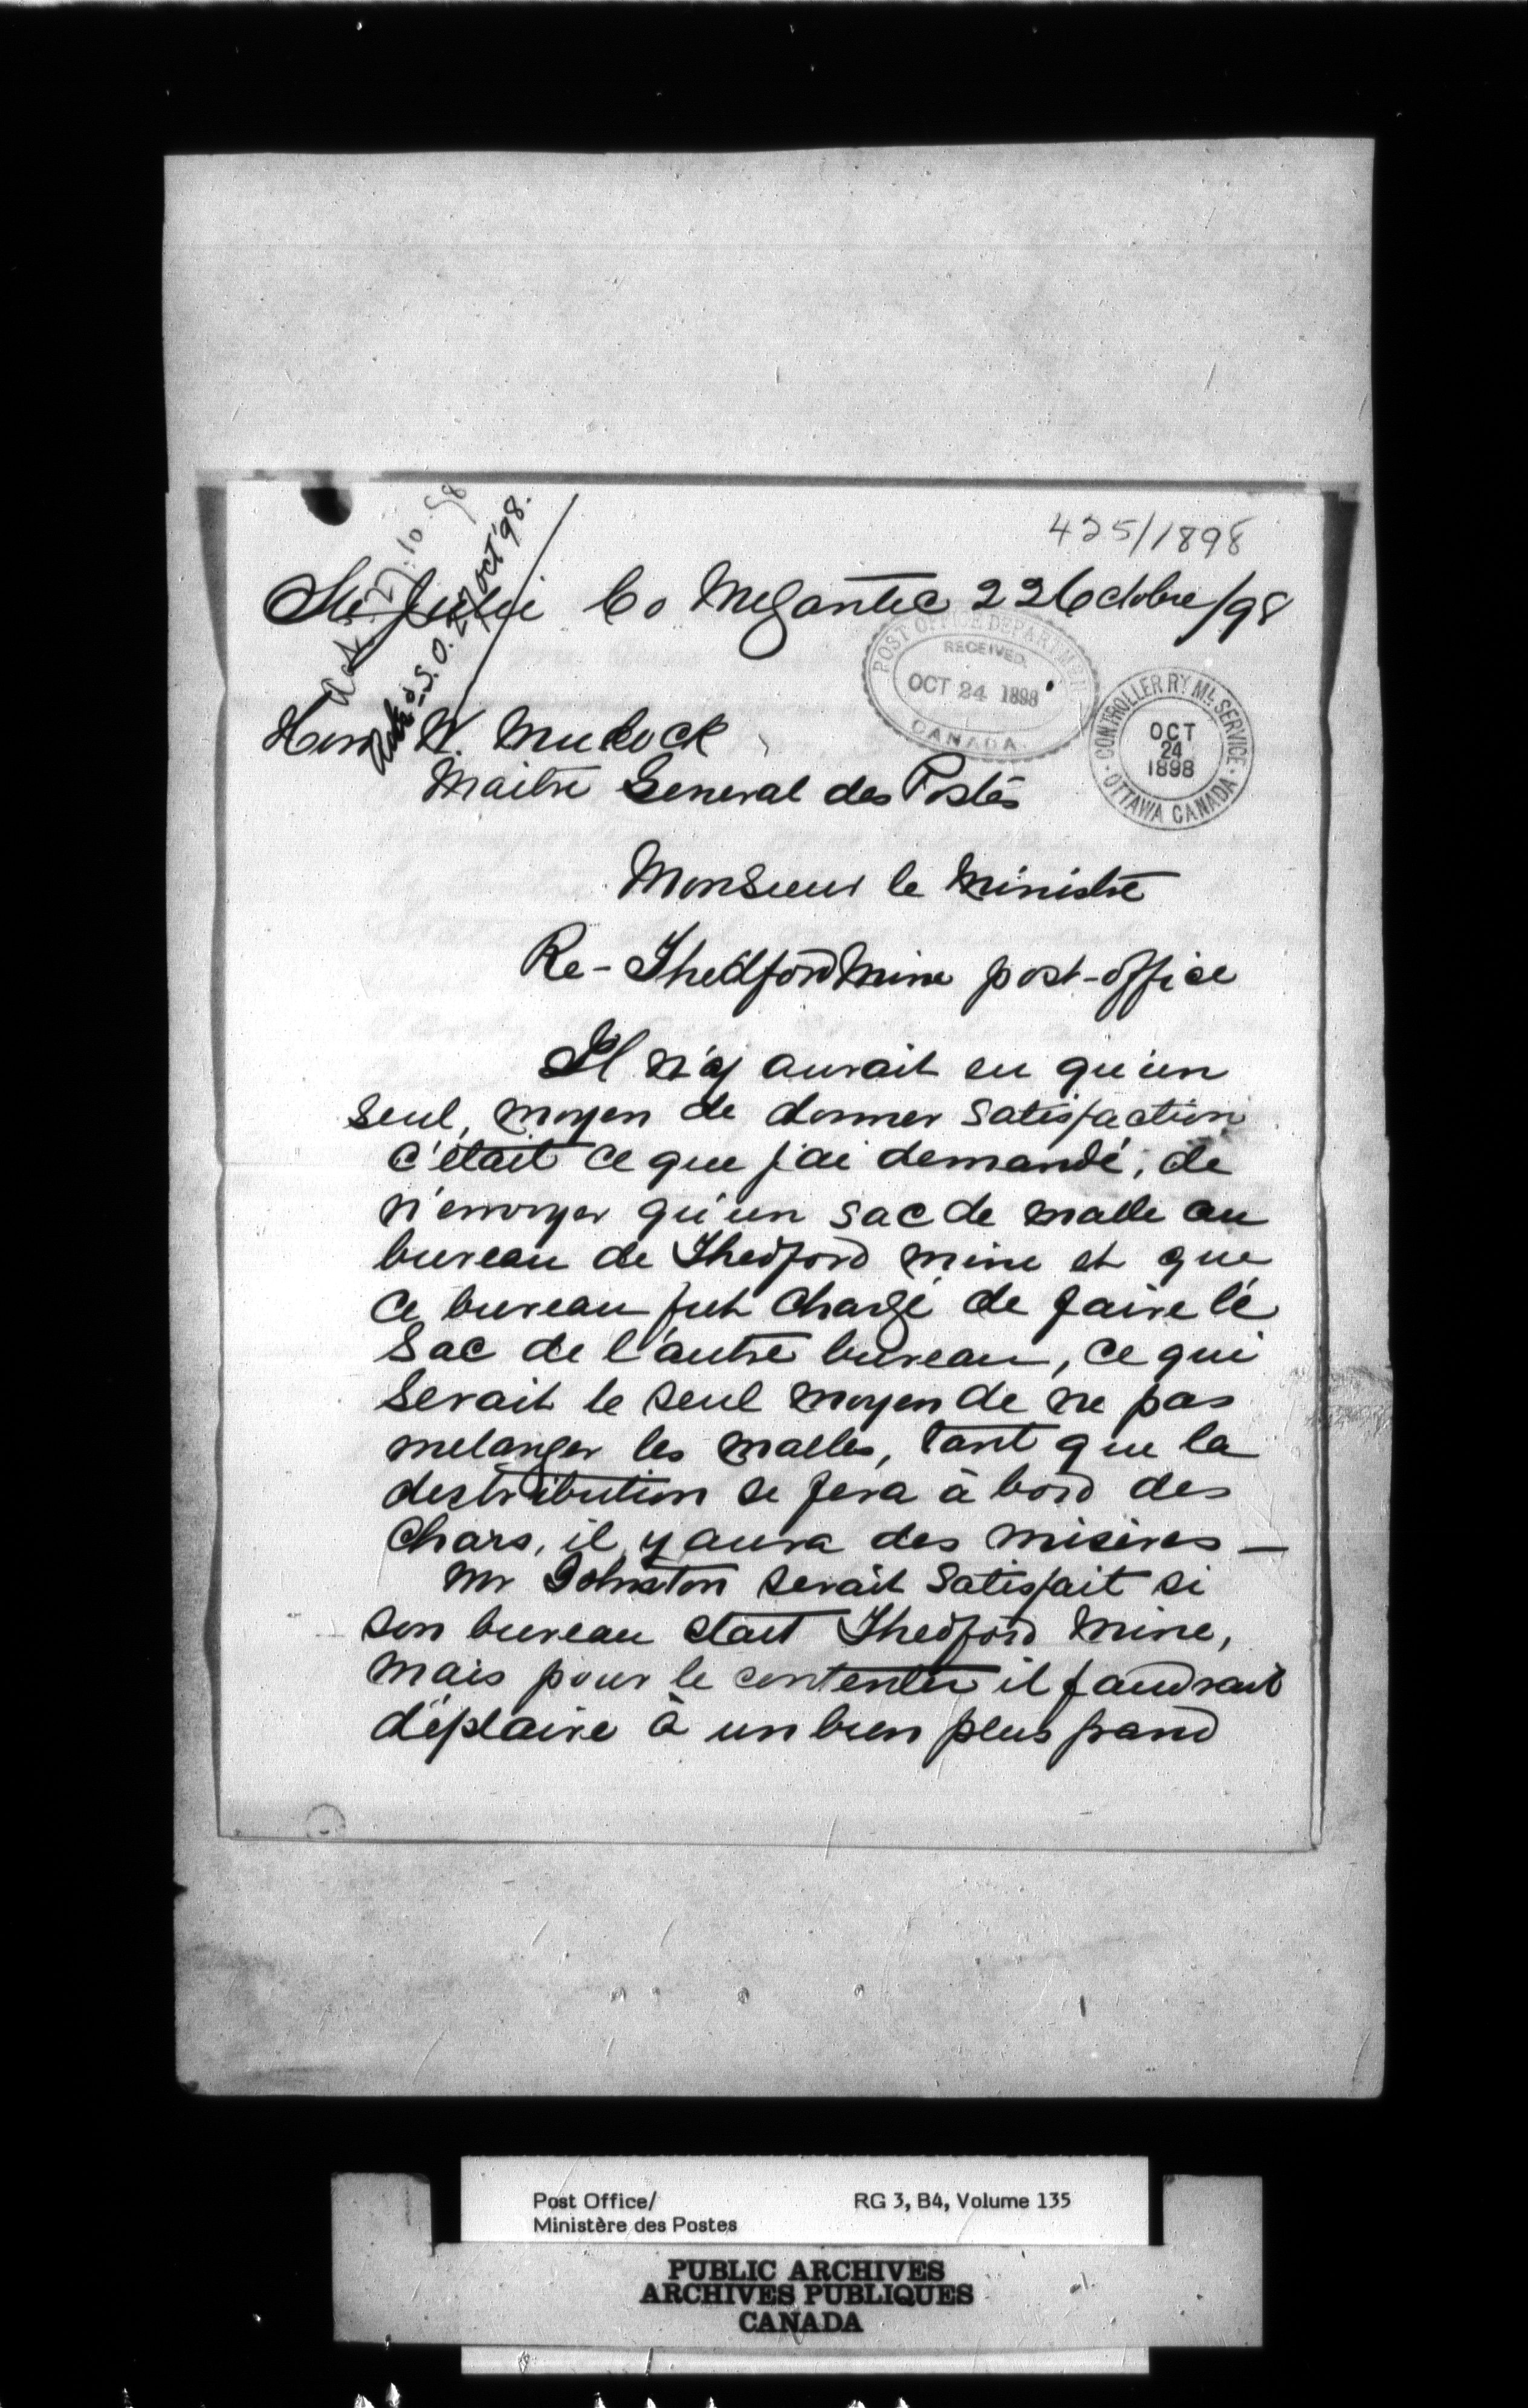 425/1898
Ste Julie Co Megantic 22 Octobre/98
Ack'd S.O. 27 Oct '98.
POST OFFICE DEPARTMENT
RECEIVED
OCT 24 1898
CANADA
CONTROLLER RY ML. SERVICE
OCT
24
1898
OTTAWA CANADA
Hon W. Mulock
Maitre General des Postes
Monsieur le Ministre
Re - Thedford Mine post-office
Il n'y aurait eu qu'un
seul, moyen de donner satisfaction
c'était ce que j'ai demandé, de
n'envoyer qu'un sac de malle au
bureau de Thedford mine et que
ce bureau fut chargé de faire le
sac de l'autre bureau, ce qui
serait le seul moyen de ne pas
melanger les malles, tant que la
destribution se fera à bord des
chars, il y aura des misères —
Mr Johnston serait satisfait si
son bureau etait Thedford Mine,
mais pour le contenter il faudrait
déplaire à un bien plus grand
Post Office/
Ministère des Postes
RG 3, B4, Volume 135
PUBLIC ARCHIVES
ARCHIVES PUBLIQUES
CANADA